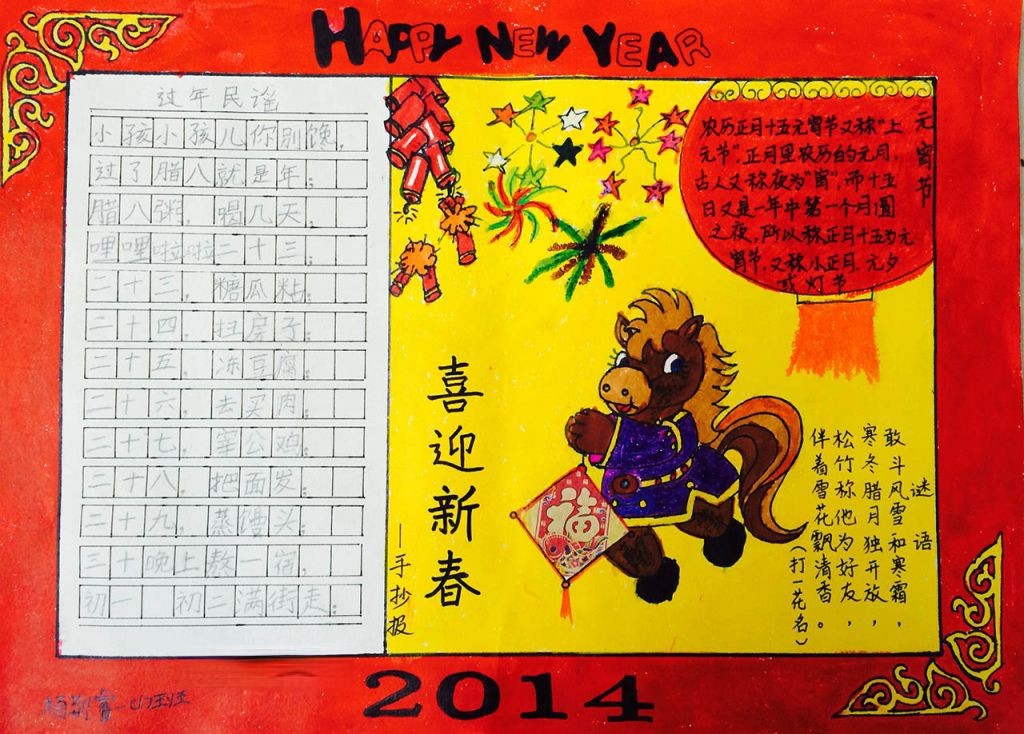 HAPPY NEW YEAR
过年民谣
小孩小孩儿你别馋，
过了腊八就是年；
腊八粥，喝几天，
哩哩啦啦二十三；
二十三，糖瓜粘；
二十四，扫房子；
二十五，冻豆腐；
二十六，去买肉；
二十七，宰公鸡；
二十八，把面发；
二十九，蒸馒头；
三十晚上熬一宿；
初一 初二满街走；
喜迎新春
—手抄报
元宵节
农历正月十五元宵节又称"上
元节"，正月里农历的元月，
古人又称夜为"宵"，而十五
日又是一年中第一个月圆
之夜，所以称正月十五为元
宵节，又称小正月、元夕
或灯节
福
谜语
敢斗风雪和寒霜，
寒冬腊月独开放，
松竹称他为好友，
伴着雪花飘清香。
（打一花名）
2014